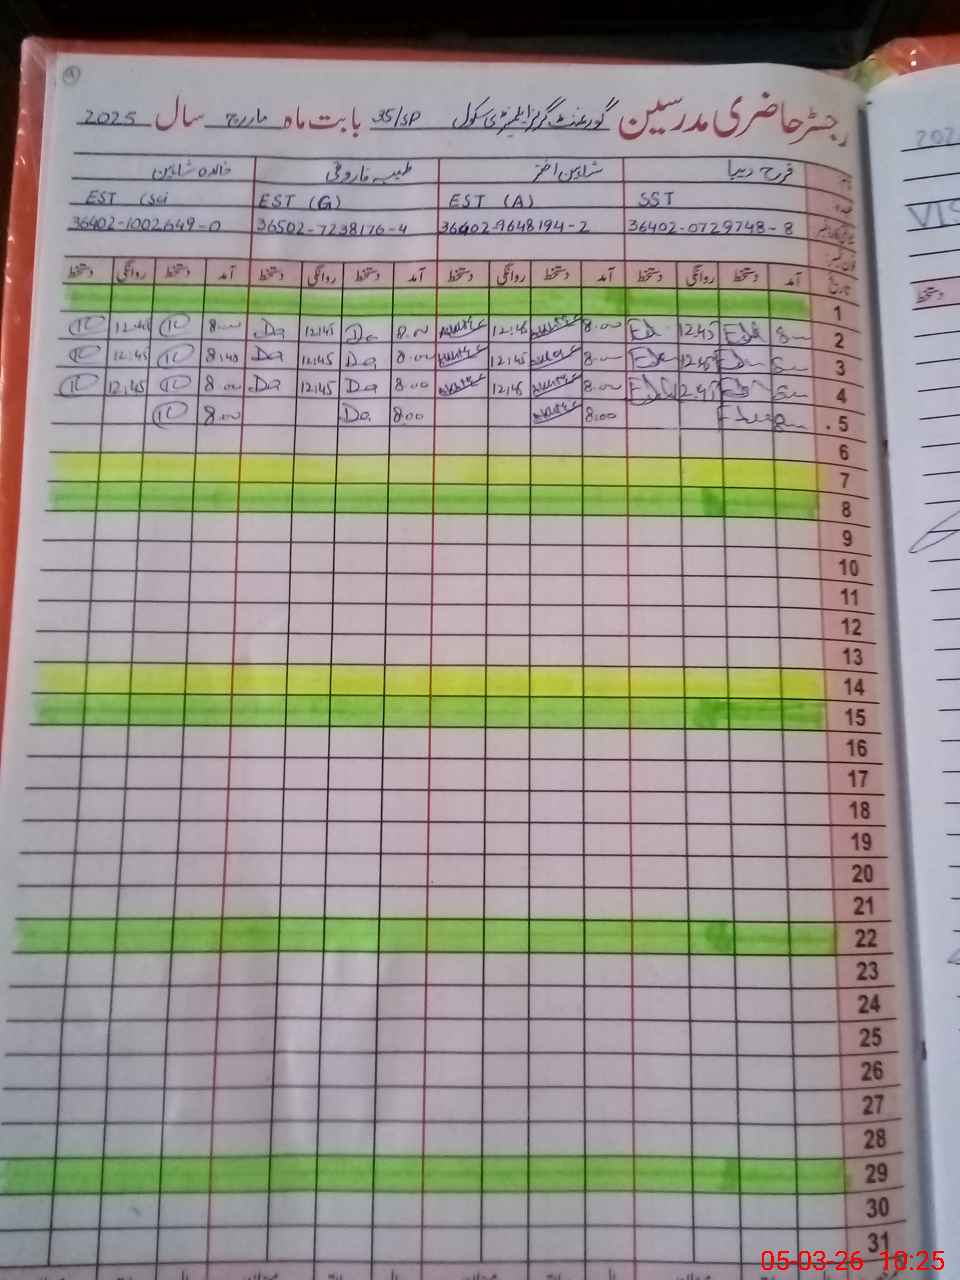 رجسٹر حاضری مدرسین گورنمنٹ گرلز ایلیمنٹری سکول 35/SP بابت ماہ مارچ سال 2025
فرح دیبا شاہین اختر طیبہ فاروقی خالدہ شاہین
SST EST (A) EST (G) EST (Sci
36402-0729748-8 36402-9648194-2 36502-7238176-4 36402-1002649-0
تاریخ آمد دستخط روانگی دستخط آمد دستخط روانگی دستخط آمد دستخط روانگی دستخط آمد دستخط روانگی دستخط
1
2 12.45 8.00 12:45 8.00 Da 12:45 Da 8.00 12:45
3 12:45 8.00 12:45 8:00 Da 12:45 Da 12:45
4 12:45 8.00 12:45 8.00 Da 12:45 Da 8.00 12:45
5 8:00 8.00 Da 8.00
6
7
8
9
10
11
12
13
14
15
16
17
18
19
20
21
22
23
24
25
26
27
28
29
30
31
05-03-26 10:25